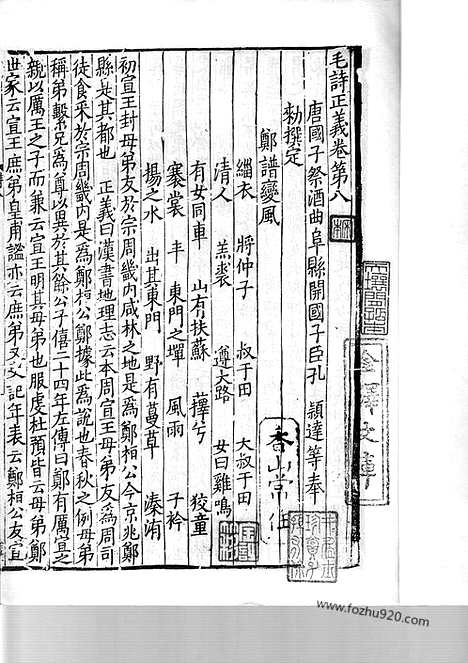 毛詩正義卷第八
唐國子祭酒曲阜縣開國子臣孔 穎達等奉
勑撰定
鄭譜變風
緇衣 將仲子 叔于田 大叔于田
清人 羔裘 遵大路 女曰雞鳴
有女同車 山有扶蘇 蘀兮 狡童
褰裳 丰 東門之墠 風雨 子衿
揚之水 出其東門 野有蔓草 溱洧
初宣王封母弟友於宗周畿內咸林之地是為鄭桓公今京兆鄭
縣是其都也 正義曰漢書地理志云本周宣王母弟友為周司
徒食采於宗周畿內是為鄭桓公鄭據此為說也春秋之例母弟
稱弟繫兄為尊以異於其餘公子僖二十四年左傳曰鄭有厲宣之
親以厲王之子而兼云宣王明其母弟也服虔杜預皆云母弟鄭
世家云宣王庶弟皇甫謐亦云庶弟又史記年表云鄭桓公友宣
香山常住
金澤文庫
www.fozhu920.com